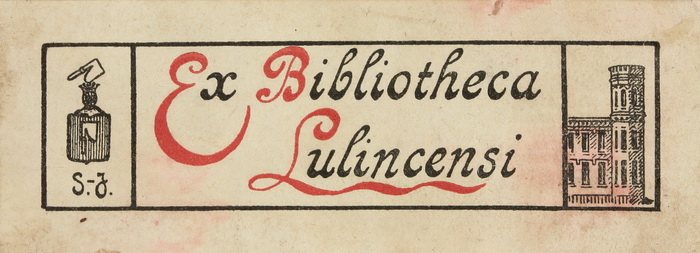 Ex Bibliotheca
Lulincensi
S.-J.